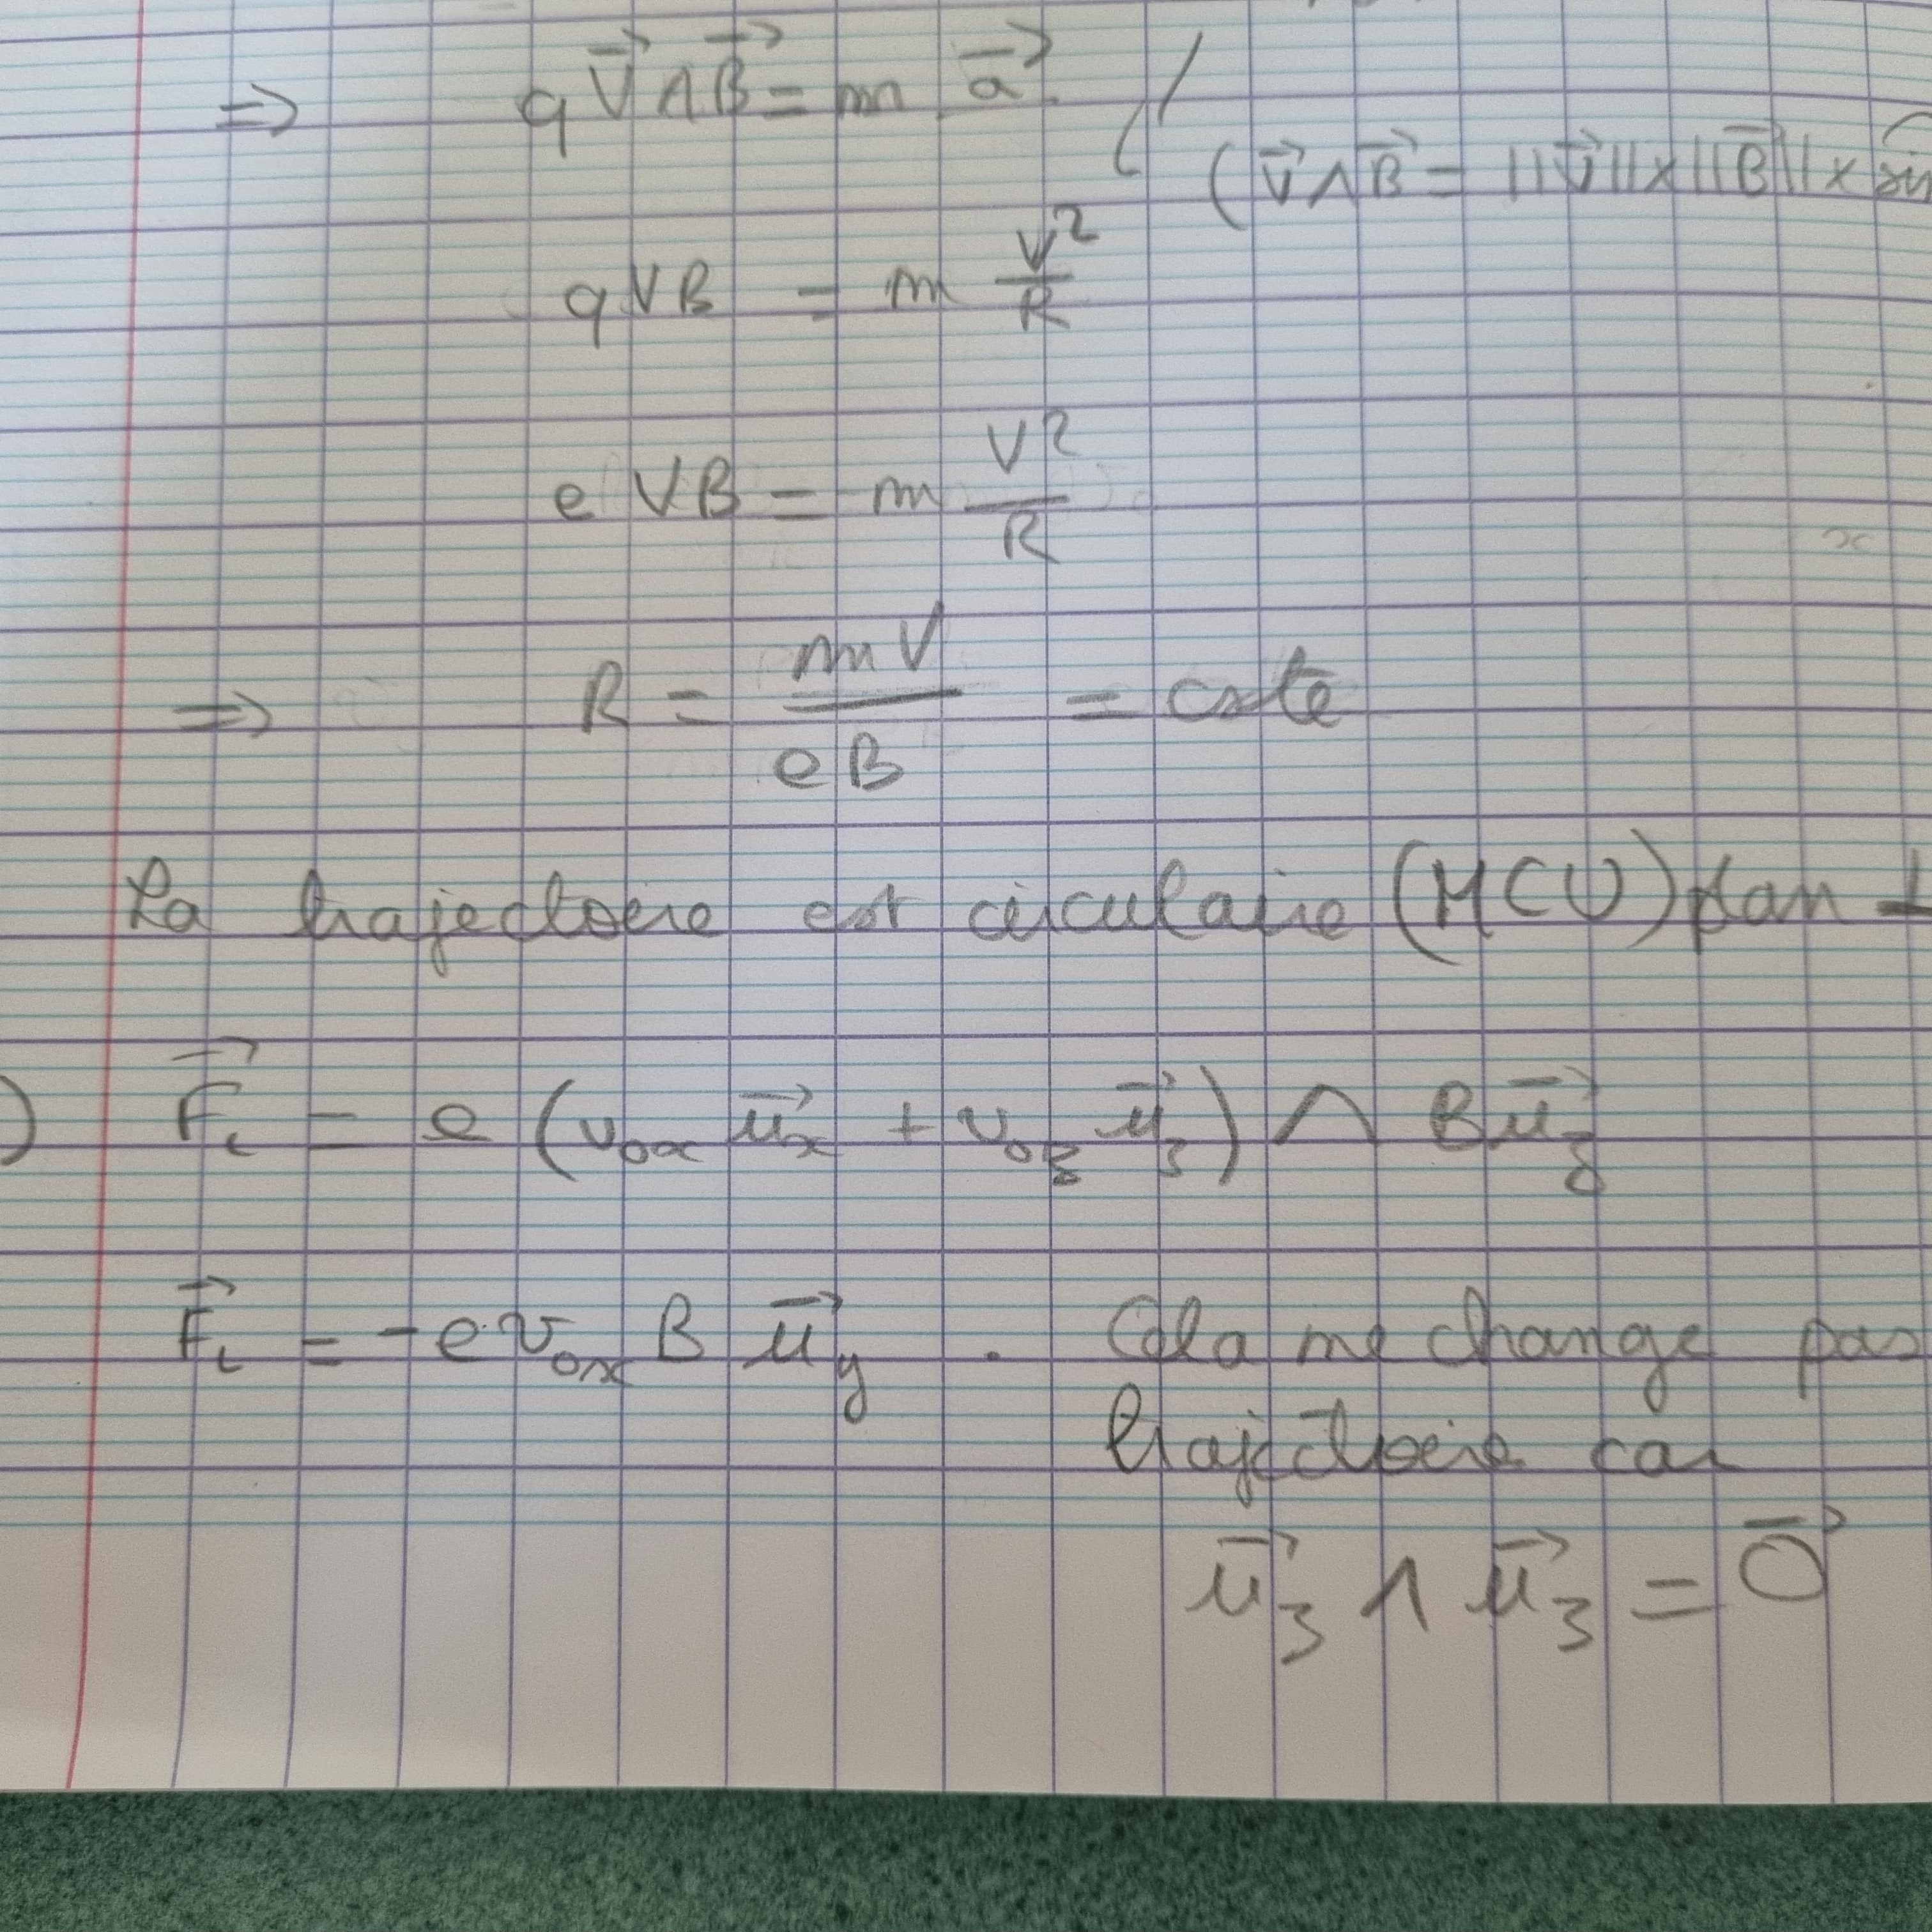 ⇒ q V⃗ ∧ B⃗ = m a⃗
( V⃗ ∧ B⃗ = ||V⃗|| x ||B⃗|| x sin
q V B = m V²/R
e V B = m V²/R
⇒ R = mV/eB = cste
La trajectoire est circulaire (MCU) plan ⊥
) F⃗L = e (v0x u⃗x + v0z u⃗z) ∧ B u⃗z
F⃗L = - e v0x B u⃗y . Cela ne change pas
trajectoire car
u⃗z ∧ u⃗z = 0⃗